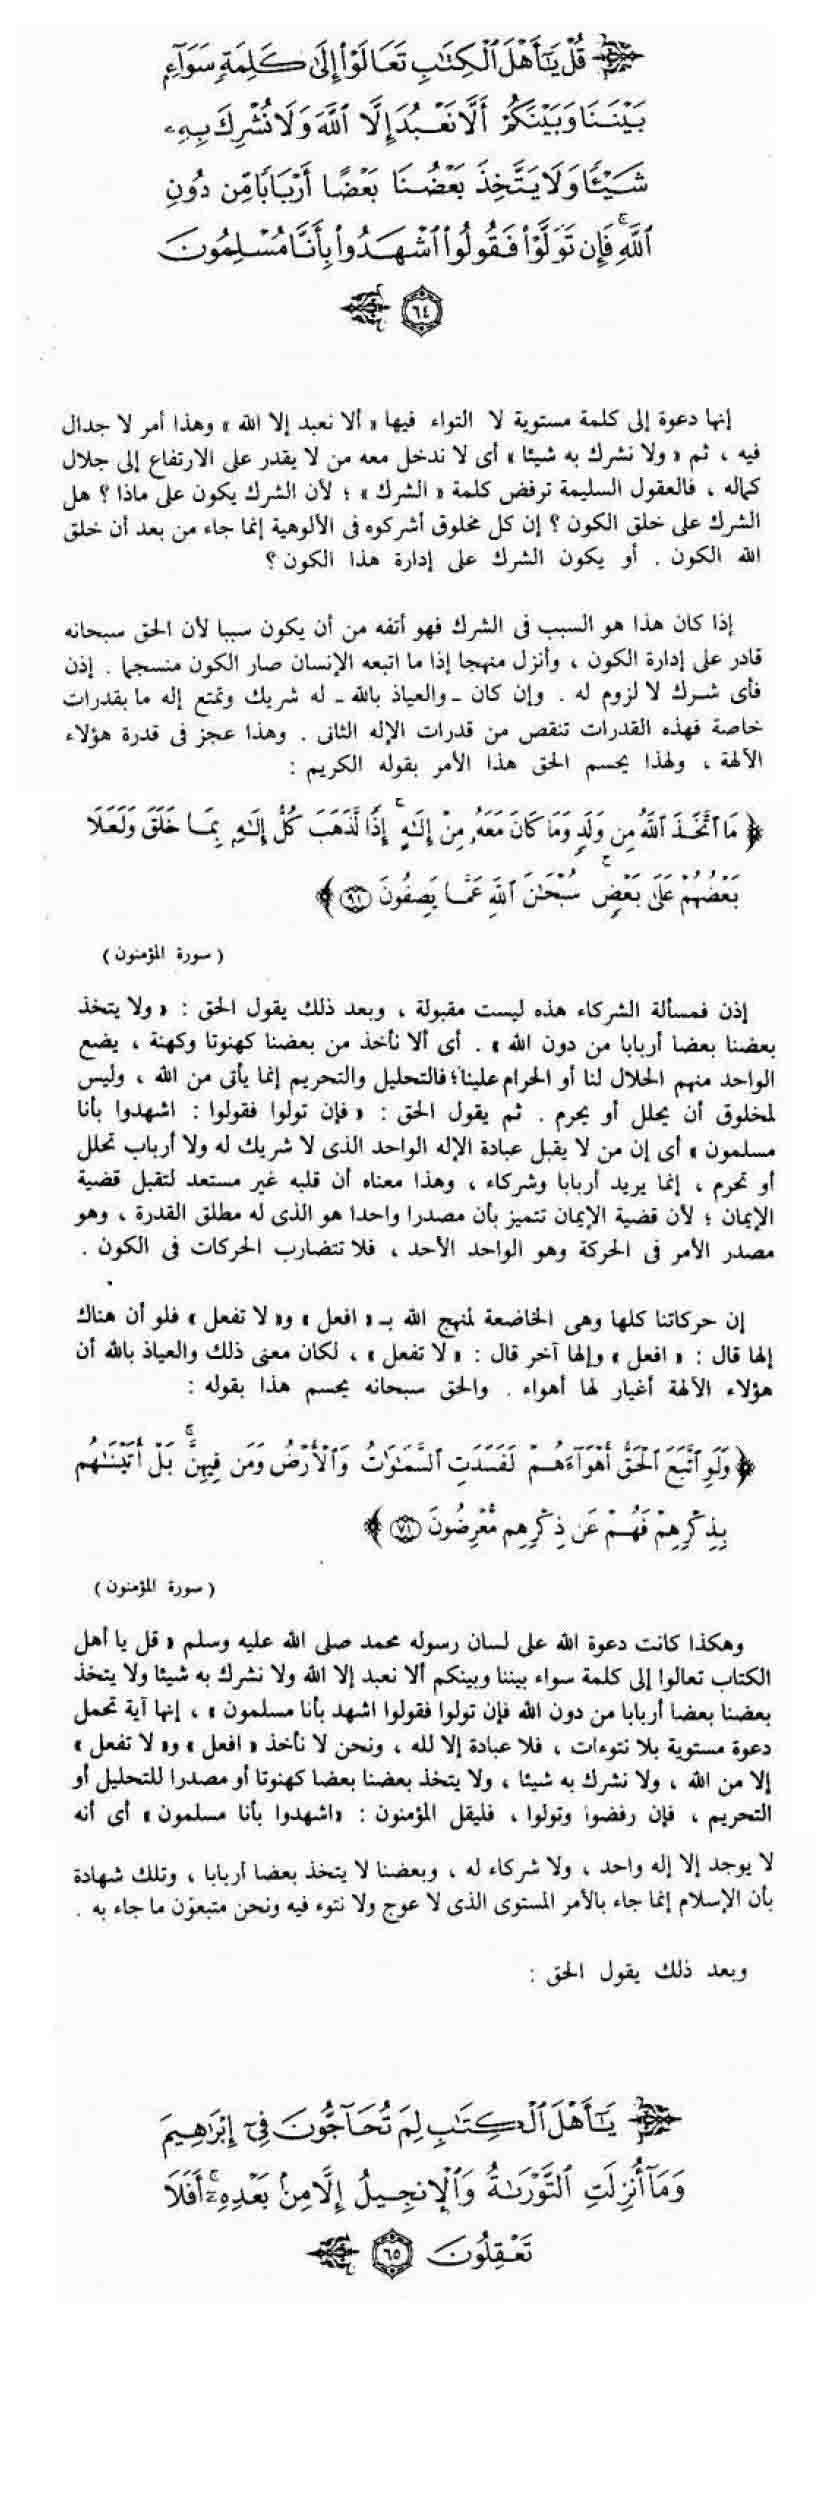 قُلْ يَٰٓأَهْلَ ٱلْكِتَٰبِ تَعَالَوْا۟ إِلَىٰ كَلِمَةٍ سَوَآءٍۭ
بَيْنَنَا وَبَيْنَكُمْ أَلَّا نَعْبُدَ إِلَّا ٱللَّهَ وَلَا نُشْرِكَ بِهِۦ
شَيْـًٔا وَلَا يَتَّخِذَ بَعْضُنَا بَعْضًا أَرْبَابًا مِّن دُونِ
ٱللَّهِ ۚ فَإِن تَوَلَّوْا۟ فَقُولُوا۟ ٱشْهَدُوا۟ بِأَنَّا مُسْلِمُونَ
٦٤
إنها دعوة إلى كلمة مستوية لا التواء فيها « ألا نعبد إلا الله » وهذا أمر لا جدال
فيه ، ثم « ولا نشرك به شيئا » أى لا ندخل معه من لا يقدر على الارتفاع إلى جلال
كماله ، فالعقول السليمة ترفض كلمة « الشرك » ؛ لأن الشرك يكون على ماذا ؟ هل
الشرك على خلق الكون ؟ إن كل مخلوق أشركوه فى الألوهية إنما جاء من بعد أن خلق
الله الكون . أو يكون الشرك على إدارة هذا الكون ؟
إذا كان هذا هو السبب فى الشرك فهو أتفه من أن يكون سببا لأن الحق سبحانه
قادر على إدارة الكون ، وأنزل منهجا إذا ما اتبعه الإنسان صار الكون منسجما . إذن
فأى شرك لا لزوم له . وإن كان - والعياذ بالله - له شريك وتمتع إله ما بقدرات
خاصة فهذه القدرات تنقص من قدرات الإله الثانى . وهذا عجز فى قدرة هؤلاء
الآلهة ، ولهذا يحسم الحق هذا الأمر بقوله الكريم :
﴿ مَا ٱتَّخَذَ ٱللَّهُ مِن وَلَدٍ وَمَا كَانَ مَعَهُۥ مِنْ إِلَٰهٍ ۚ إِذًا لَّذَهَبَ كُلُّ إِلَٰهٍۭ بِمَا خَلَقَ وَلَعَلَا
بَعْضُهُمْ عَلَىٰ بَعْضٍ ۚ سُبْحَٰنَ ٱللَّهِ عَمَّا يَصِفُونَ ٩١ ﴾
( سورة المؤمنون )
إذن فمسألة الشركاء هذه ليست مقبولة ، وبعد ذلك يقول الحق : « ولا يتخذ
بعضنا بعضا أربابا من دون الله » . أى ألا نأخذ من بعضنا كهنوتا وكهنة ، يضع
الواحد منهم الحلال لنا أو الحرام علينا؛ فالتحليل والتحريم إنما يأتى من الله ، وليس
لمخلوق أن يحلل أو يحرم . ثم يقول الحق : « فإن تولوا فقولوا : اشهدوا بأنا
مسلمون » أى إن من لا يقبل عبادة الإله الواحد الذى لا شريك له ولا أرباب تحلل
أو تحرم ، إنما يريد أربابا وشركاء ، وهذا معناه أن قلبه غير مستعد لتقبل قضية
الإيمان ؛ لأن قضية الإيمان تتميز بأن مصدرا واحدا هو الذى له مطلق القدرة ، وهو
مصدر الأمر فى الحركة وهو الواحد الأحد ، فلا تتضارب الحركات فى الكون .
إن حركاتنا كلها وهى الخاضعة لمنهج الله بـ « افعل » و« لا تفعل » فلو أن هناك
إلها قال : « افعل » وإلها آخر قال : « لا تفعل » ، لكان معنى ذلك والعياذ بالله أن
هؤلاء الآلهة أغيار لها أهواء . والحق سبحانه يحسم هذا بقوله :
﴿ وَلَوِ ٱتَّبَعَ ٱلْحَقُّ أَهْوَآءَهُمْ لَفَسَدَتِ ٱلسَّمَٰوَٰتُ وَٱلْأَرْضُ وَمَن فِيهِنَّ ۚ بَلْ أَتَيْنَٰهُم
بِذِكْرِهِمْ فَهُمْ عَن ذِكْرِهِم مُّعْرِضُونَ ٧١ ﴾
( سورة المؤمنون )
وهكذا كانت دعوة الله على لسان رسوله محمد صلى الله عليه وسلم « قل يا أهل
الكتاب تعالوا إلى كلمة سواء بيننا وبينكم ألا نعبد إلا الله ولا نشرك به شيئا ولا يتخذ
بعضنا بعضا أربابا من دون الله فإن تولوا فقولوا اشهد بأنا مسلمون » ، إنها آية تحمل
دعوة مستوية بلا نتوءات ، فلا عبادة إلا لله ، ونحن لا نأخذ « افعل » و« لا تفعل »
إلا من الله ، ولا نشرك به شيئا ، ولا يتخذ بعضنا بعضا كهنوتا أو مصدرا للتحليل أو
التحريم ، فإن رفضوا وتولوا ، فليقل المؤمنون : «اشهدوا بأنا مسلمون» أى أنه
لا يوجد إلا إله واحد ، ولا شركاء له ، وبعضنا لا يتخذ بعضا أربابا ، وتلك شهادة
بأن الإسلام إنما جاء بالأمر المستوى الذى لا عوج ولا نتوء فيه ونحن متبعون ما جاء به .
وبعد ذلك يقول الحق :
يَٰٓأَهْلَ ٱلْكِتَٰبِ لِمَ تُحَآجُّونَ فِىٓ إِبْرَٰهِيمَ
وَمَآ أُنزِلَتِ ٱلتَّوْرَىٰةُ وَٱلْإِنجِيلُ إِلَّا مِنۢ بَعْدِهِۦٓ ۚ أَفَلَا
تَعْقِلُونَ ٦٥